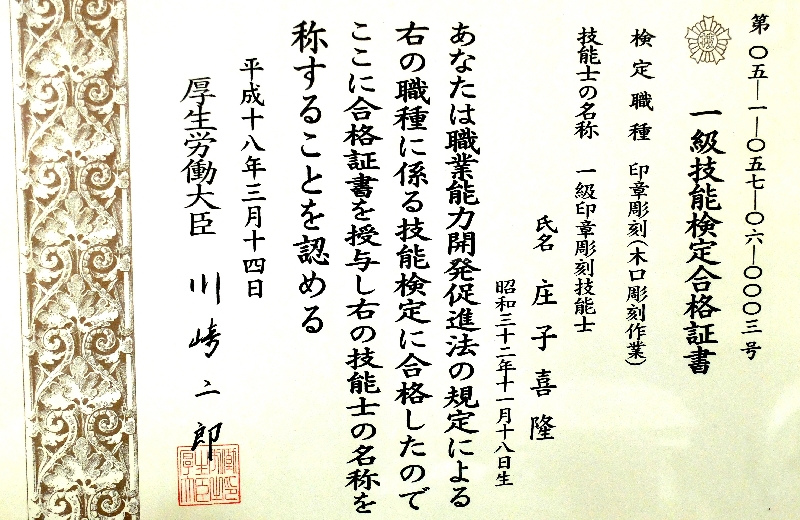 第〇五―一―〇五七―〇六―〇〇〇三号
一級技能検定合格証書
検定職種 印章彫刻(木口彫刻作業)
技能士の名称 一級印章彫刻技能士
氏名 庄子喜隆
昭和三十二年十一月十八日生
あなたは職業能力開発促進法の規定による
右の職種に係る技能検定に合格したので
ここに合格証書を授与し右の技能士の名称を
称することを認める
平成十八年三月十四日
厚生労働大臣 川崎二郎